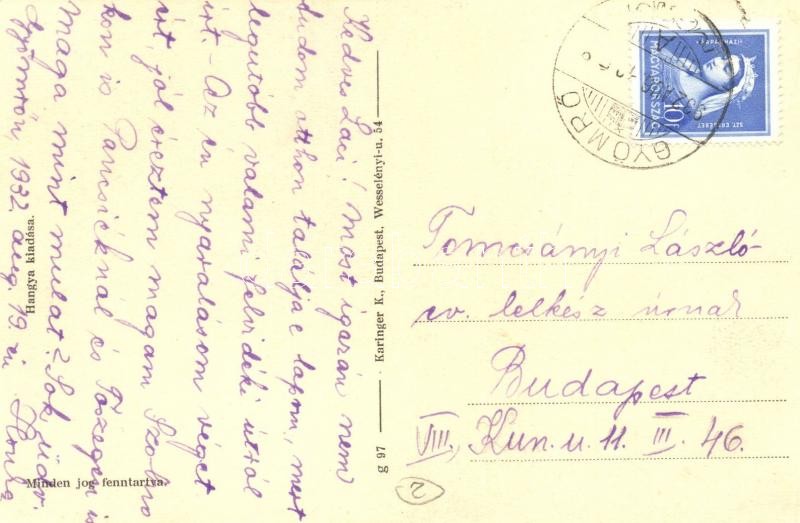 Kedves Laci! Most igazán nem
tudom otthon találja-e lapom, mert
legutóbb valami felvidéki útról
írt. – Az én nyaralásom véget
ért, jól éreztem magam Szolno
kon is Pancsiéknál és Tószegen is
Maga mint mulat? Sok üdv.
Gyömrőn, 1932. aug 19. én
Hangya kiadása.
Minden jog fenntartva.
g 97
Karinger K., Budapest, Wesselényi-u. 54
GYÖMRŐ
MAGYARORSZÁG
SZT. ERZSÉBET
10F
Tomcsányi László
ev. lelkész úrnak
Budapest
VIII, Kun. u. 11. III. 46.
2